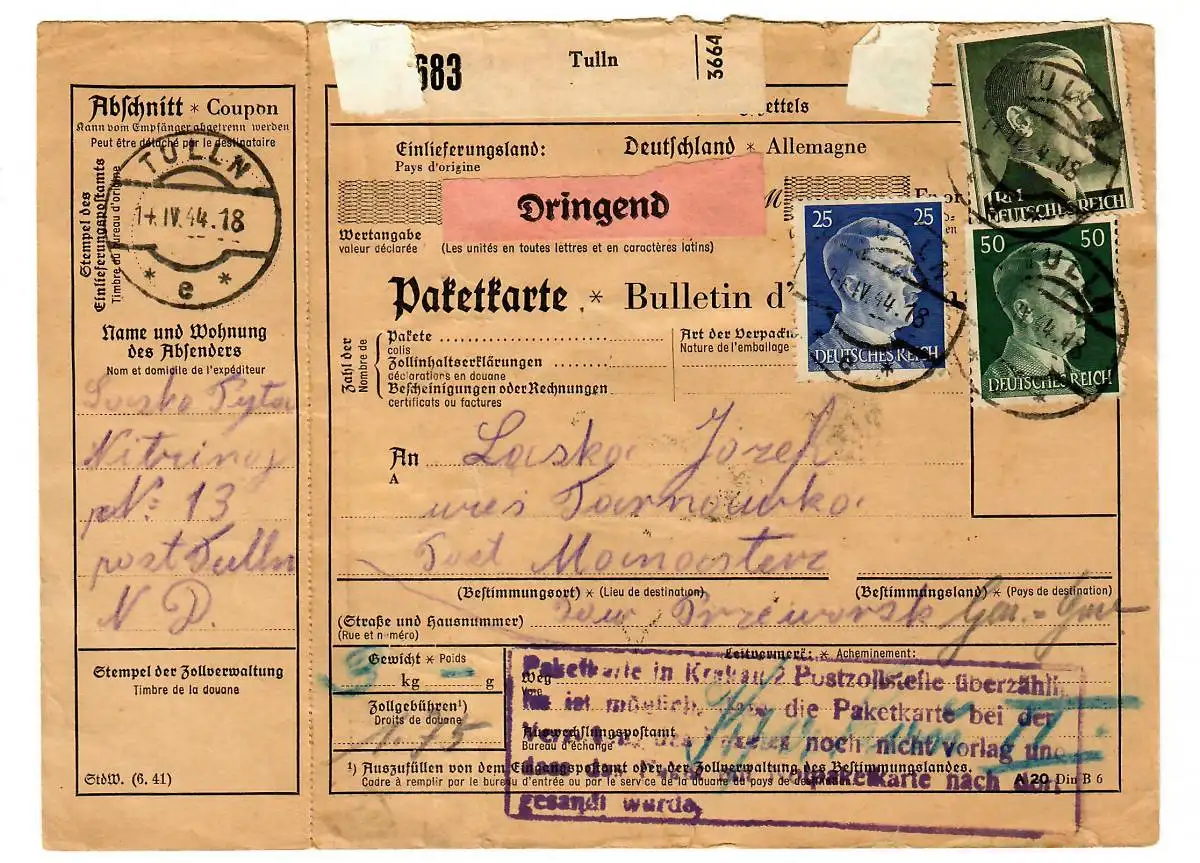 683 Tulln 3664
ettels
Abschnitt * Coupon
Kann vom Empfänger abgetrennt werden
Peut être détaché par le destinataire
Stempel des Einlieferungspostamts
Timbre du bureau d'origine
TULLN
14.IV.44.18
* e *
Name und Wohnung
des Absenders
Nom et domicile de l'expéditeur
No 13
post Tulln
N D.
Stempel der Zollverwaltung
Timbre de la douane
StdW. (6. 41)
Einlieferungsland: Deutschland * Allemagne
Pays d'origine
Dringend
Wertangabe
valeur déclarée (Les unités en toutes lettres et en caractères latins)
Paketkarte * Bulletin d'
Zahl der
Nombre de
Pakete
colis
Zollinhaltserklärungen
déclarations en douane
Bescheinigungen oder Rechnungen
certificats ou factures
Art der Verpacku
Nature de l'emballage
1RM
DEUTSCHES REICH
25 25
DEUTSCHES REICH
50 50
DEUTSCHES REICH
TULLN
14.IV.44.18
An Laska Józef
A
wieś Tarnawka
Post
(Bestimmungsort) * (Lieu de destination) (Bestimmungsland) * (Pays de destination)
Przeworsk Gen.-Guv
(Straße und Hausnummer)
(Rue et numéro)
Gewicht * Poids
kg g
Zollgebühren¹)
Droits de douane
1.75
Leitvermerk: * Acheminement:
Weg
Voie
Auswechslungspostamt
Bureau d'échange
Paketkarte in Krakau 2 Postzollstelle überzähli
ist möglich, die Paketkarte bei der
noch nicht vorlag und
paketkarte nach dort
gesandt wurde,
¹) Auszufüllen von dem Eingangspostamt oder der Zollverwaltung des Bestimmungslandes.
Cadre à remplir par le bureau d'entrée ou par le service de la douane du pays de destination.
A 20 Din B 6